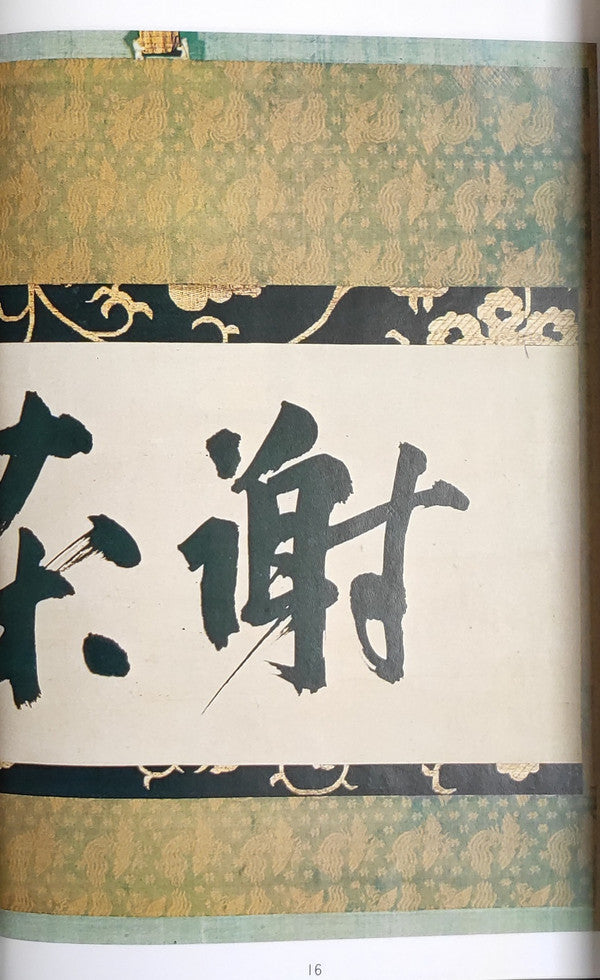 謝茶
16